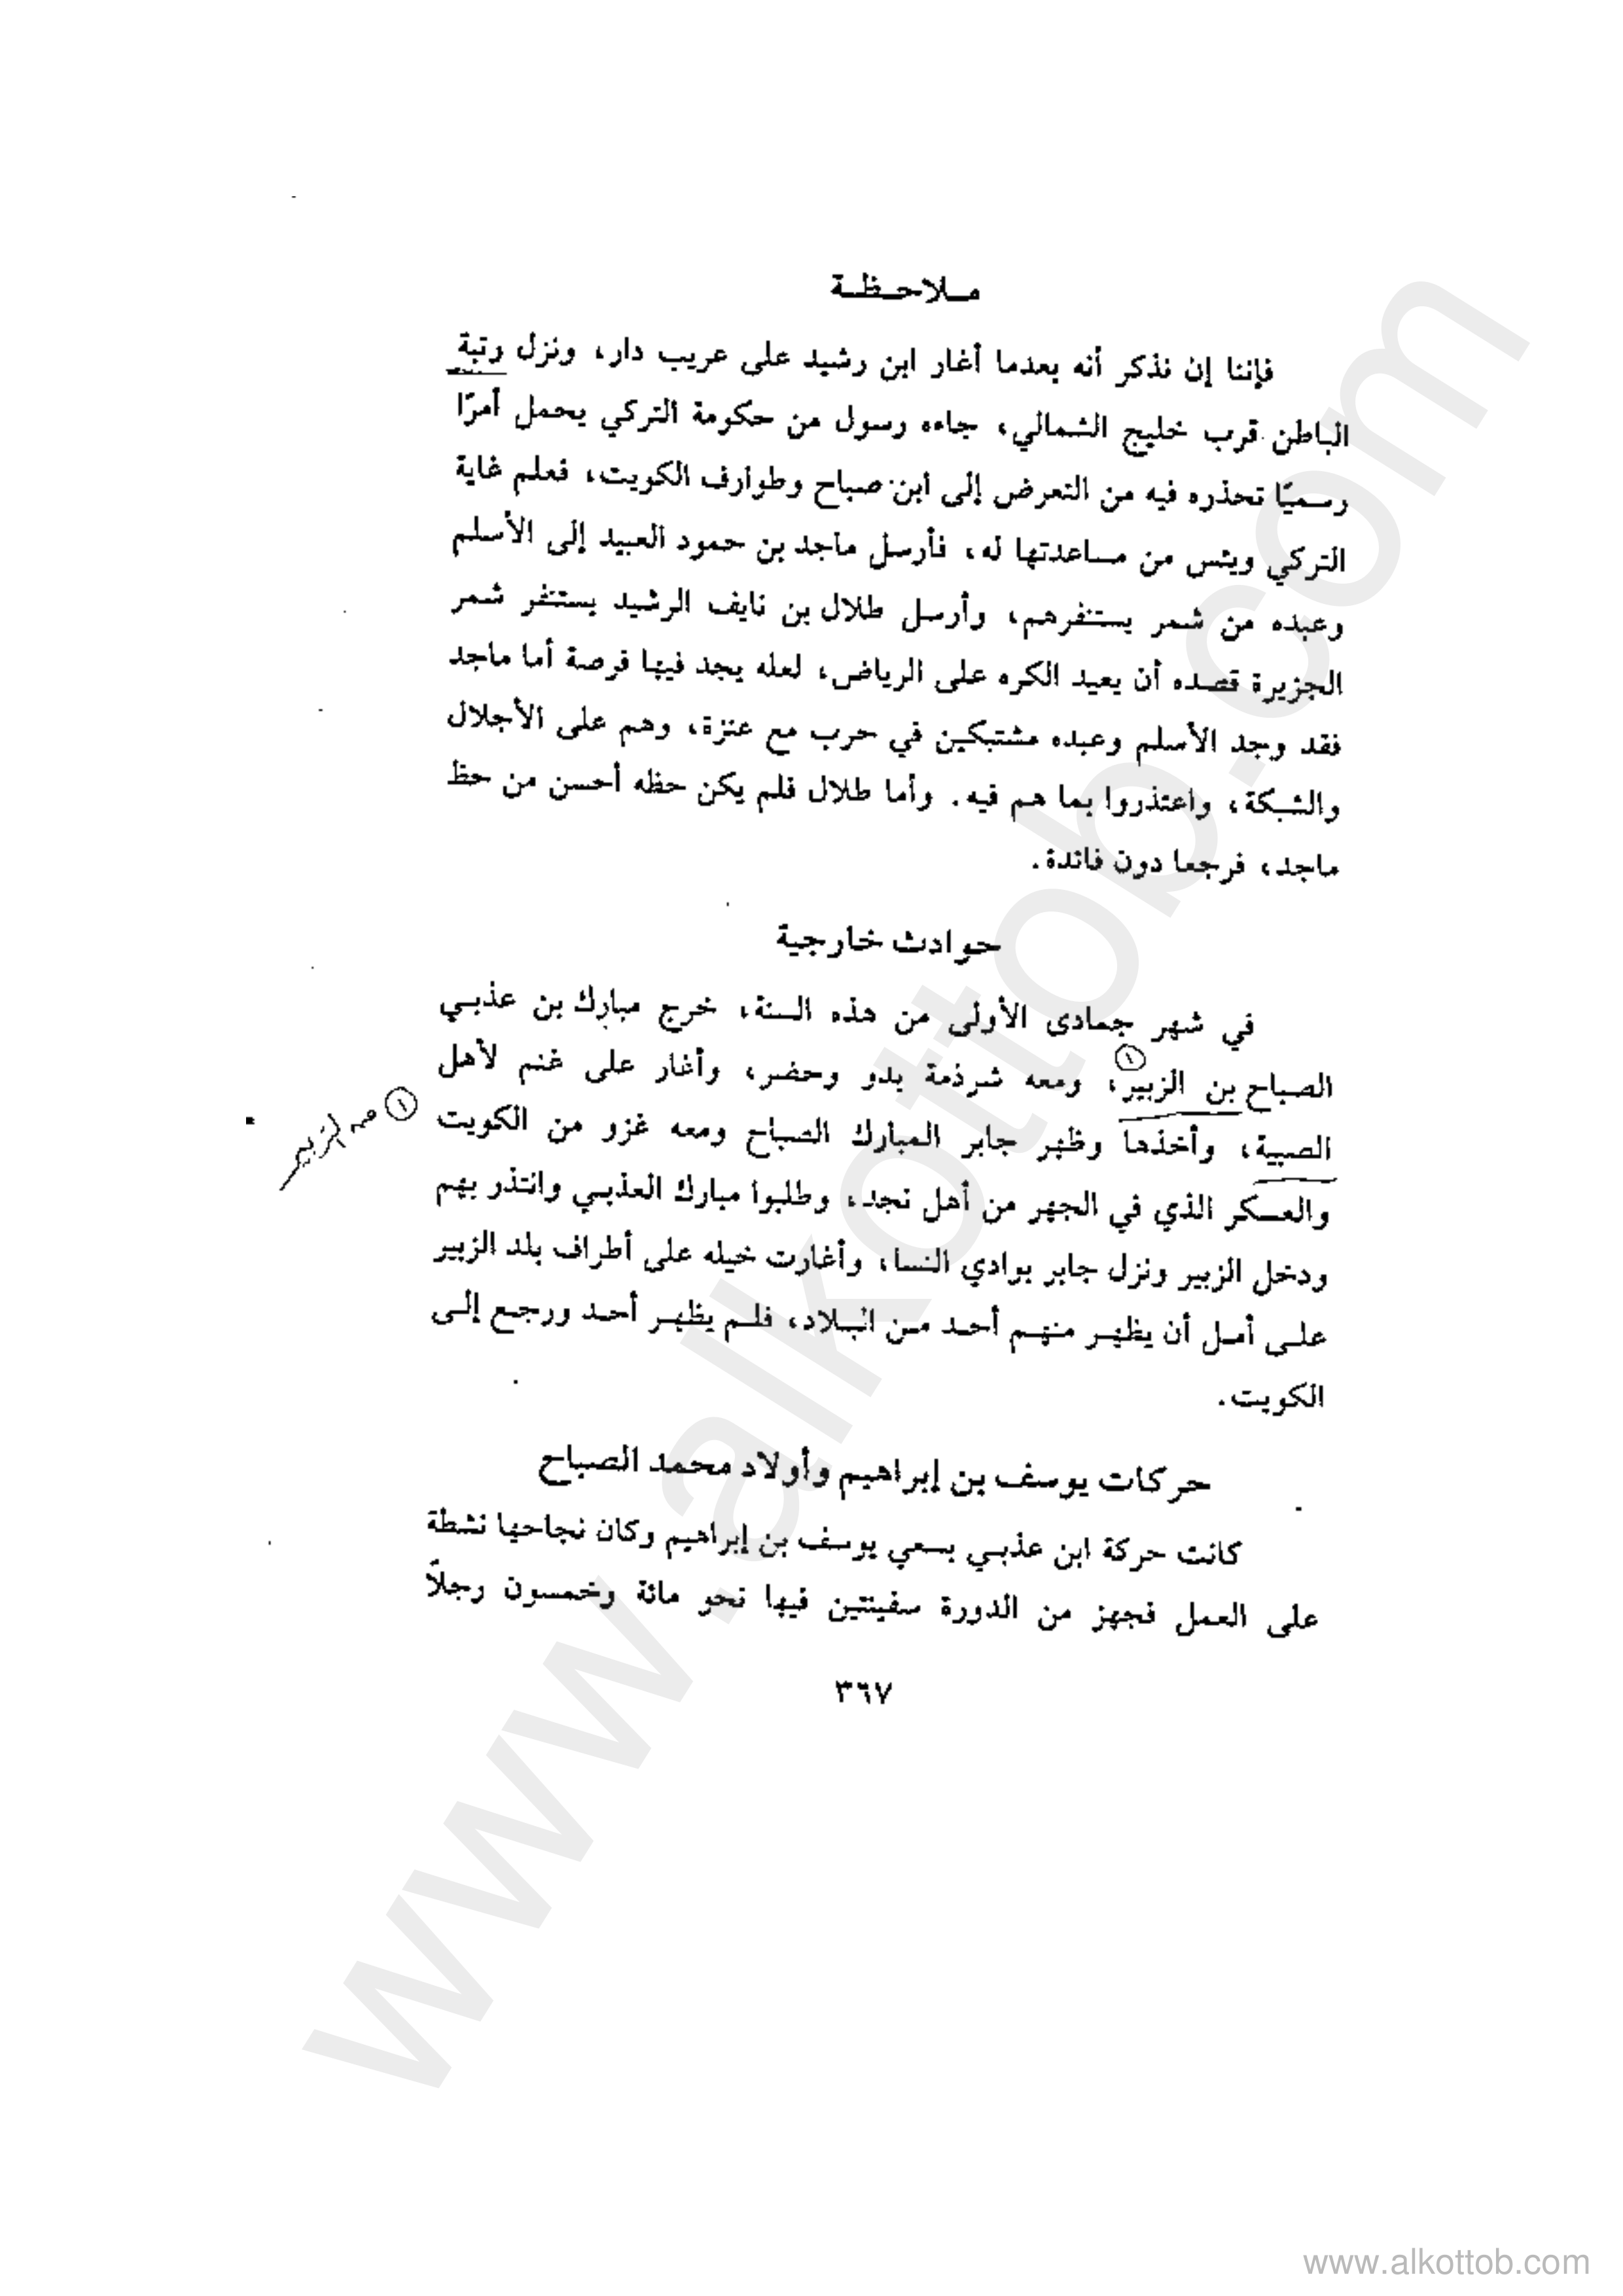 ملاحظة
فإننا إن نذكر أنه بعدما أغار ابن رشيد على عريب دار، ونزل رتبة
الباطن قرب خليج الشمالي، جاءه رسول من حكومة التركي يحمل أمرًا
رسميًا تحذره فيه من التعرض إلى ابن صباح وطوارف الكويت، فعلم غاية
التركي ويئس من مساعدتها له، فأرسل ماجد بن حمود العبيد إلى الأسلم
وعبده من شمر يستنفرهم، وأرسل طلال بن نايف الرشيد يستنفر شمر
الجزيرة قصده أن يعيد الكره على الرياض، لعله يجد فيها فرصة أما ماجد
فقد وجد الأسلم وعبده مشتبكين في حرب مع عنزة، وهم على الأجلال
والشبكة، واعتذروا بما هم فيه. وأما طلال فلم يكن حظه أحسن من حظ
ماجد، فرجعا دون فائدة.
حوادث خارجية
في شهر جمادى الأولى من هذه السنة، خرج مبارك بن عذبي
الصباح بن الزبير(١)، ومعه شرذمة بدو وحضر، وأغار على غنم لأهل
الصبية، وأخذها وظهر جابر المبارك الصباح ومعه غزو من الكويت
(١) من الزبير
والعسكر الذي في الجهر من أهل نجد، وطلبوا مبارك العذبي وانتذر بهم
ودخل الزبير ونزل جابر بوادي النسا، وأغارت خيله على أطراف بلد الزبير
على أمل أن يظهر منهم أحد من البلاد، فلم يظهر أحد ورجع إلى
الكويت.
حركات يوسف بن إبراهيم وأولاد محمد الصباح
كانت حركة ابن عذبي بسعي يوسف بن إبراهيم وكان نجاحها نشطة
على العمل فجهز من الدورة سفينتين فيها نحو مائة وخمسون رجلاً
٣٦٧
www.alkottob.com
www.alkottob.com